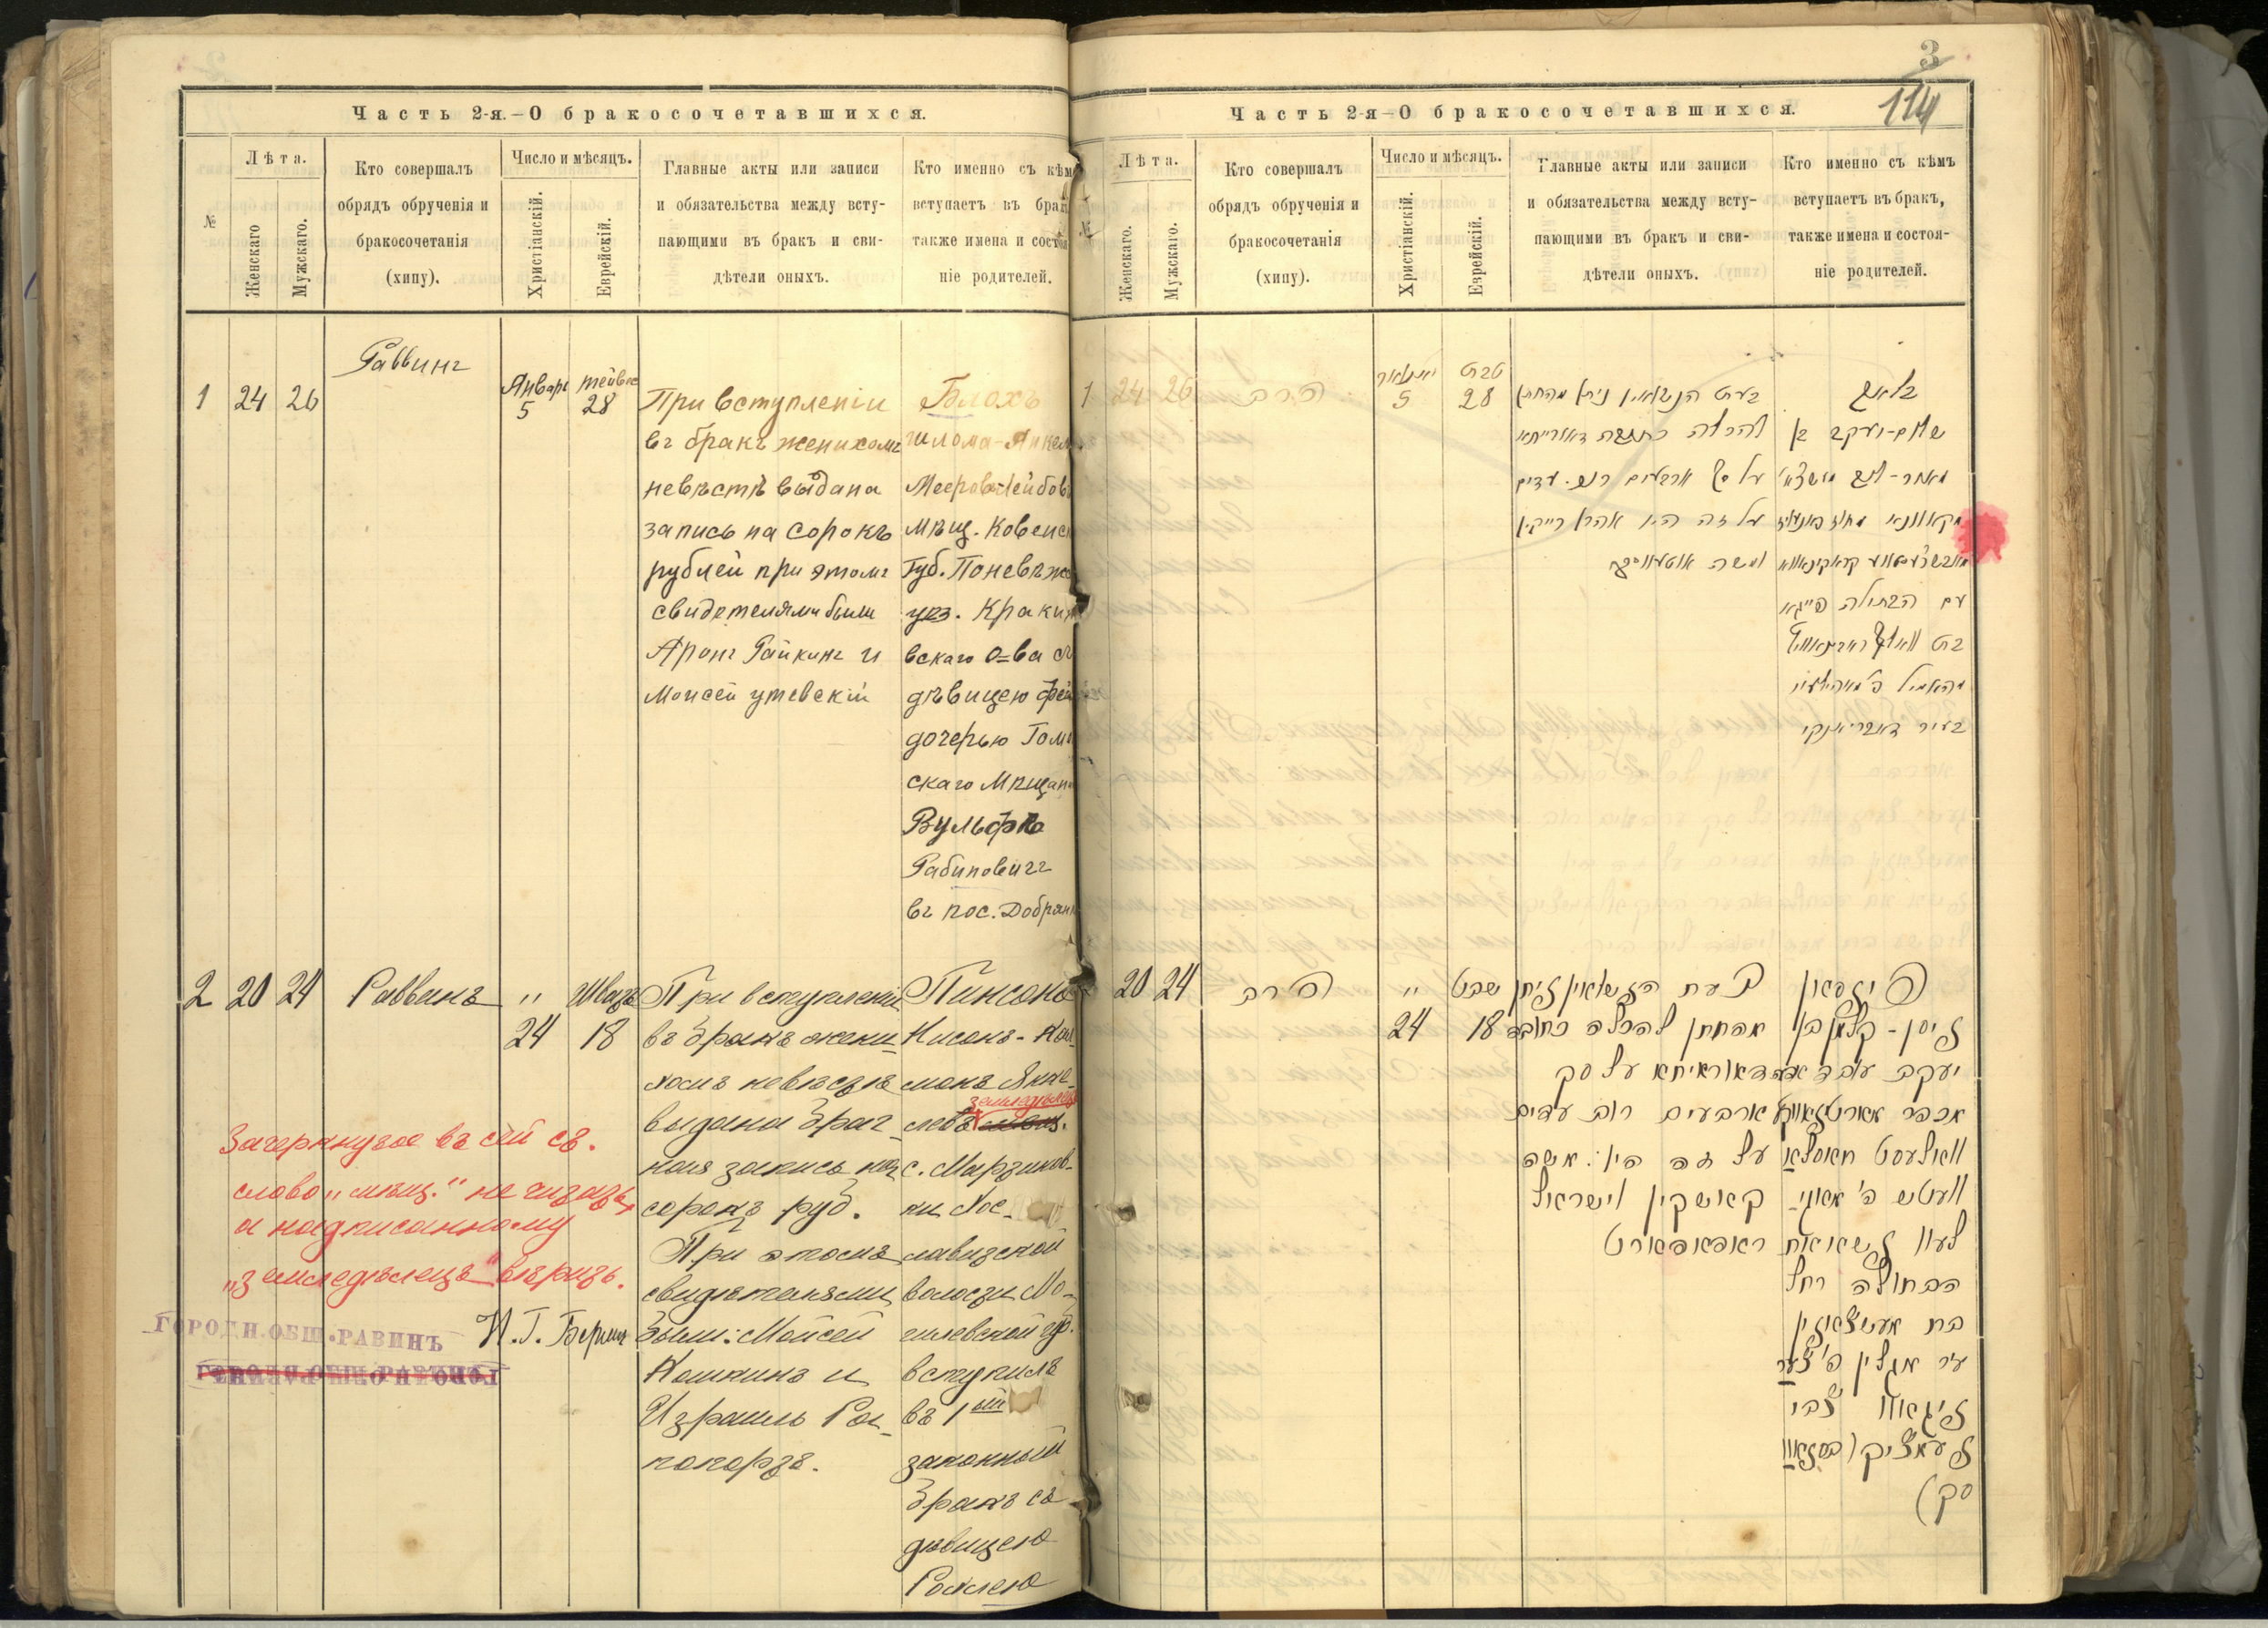 Часть 2-я.—О бракосочетавшихся.
№
Лѣта.
Женскаго
Мужскаго.
Кто совершалъ
обрядъ обрученія и
бракосочетанія
(хипу).
Число и мѣсяцъ.
Христіанскій.
Еврейскій.
Главные акты или записи
и обязательства между всту-
пающими въ бракъ и сви-
дѣтели оныхъ.
Кто именно съ кѣм
вступаетъ въ брак
также имена и состоя
ніе родителей.
1 24 26
Раввинъ
Январь
5
тейвес
28
При вступленіи
въ бракъ женихомъ
невѣстѣ выдана
запись на сорокъ
рублей при этомъ
свидетелями были
Аронъ Райкинъ и
Моисей утевскій
Блохъ
шлома-Янкель
Мееровъ-Лейбовъ
мѣщ. Ковенск
Губ. Поневѣж
уез. Краки
вскаго О-ва с
дѣвицею фей
дочерью Гом
скаго Мѣщан
Вульфа
Рабиновичъ
въ пос. Добрянк
2 20 24
Раввинъ
"
24
Шватъ
18
При вступленіи
въ бракъ жени-
хомъ невѣстѣ
выдана брач-
ная запись на
сорокъ руб.
При этомъ
свидѣтелями
были: Мойсей
Кашкинъ и
Израиль Ра-
попортъ.
Пинсонъ
Нисонъ-Кал-
монъ Янке-
левъ мѣщ.
земледѣлецъ
с. Марзинов-
ки Хос-
лавичской
волости Мо-
гилевской губ.
вступилъ
въ 1ый
законный
бракъ съ
дѣвицею
Рохлею
Зачеркнутое въ сей ст.
слово „мѣщ." не читать,
а надписанному
„земледѣлецъ" вѣрить.
ГОРОДН. ОБЩ. РАВИНЪ
Часть 2-я—О бракосочетавшихся.
3
114
№
Лѣта.
Женскаго.
Мужскаго.
Кто совершалъ
обрядъ обрученія и
бракосочетанія
(хипу).
Число и мѣсяцъ.
Христіанскій.
Еврейскій.
Главные акты или записи
и обязательства между всту-
пающими въ бракъ и сви-
дѣтели оныхъ.
Кто именно съ кѣмъ
вступаетъ въ бракъ,
также имена и состоя-
ніе родителей.
1 24 26
הרב
יאנואר
5
טבת
28
בעת הנשואין ניתן מהחתן
להכלה כתובה דאורייתא
על סך ארבעים רוב. עדים
על זה היו אהרן רייקין
ומשה אוטעווסקי
בלאך
שלום-יעקב בן
עם הבתולה פייגא
בת וואלף ראבינאוויץ
בעיר דאבריאנקי
20 24
הרב
"
24
שבט
18
בעת הנשואין ניתן
מהחתן להכלה כתובה
דאוראיתא על סך
ארבעים רוב עדים
על זה היו: משה
קאשקין וישראל
ראפאפארט
פינסאן
ניסן-קלמן בן
יעקב
לעוו נשואות
הבתולה רחל
בת